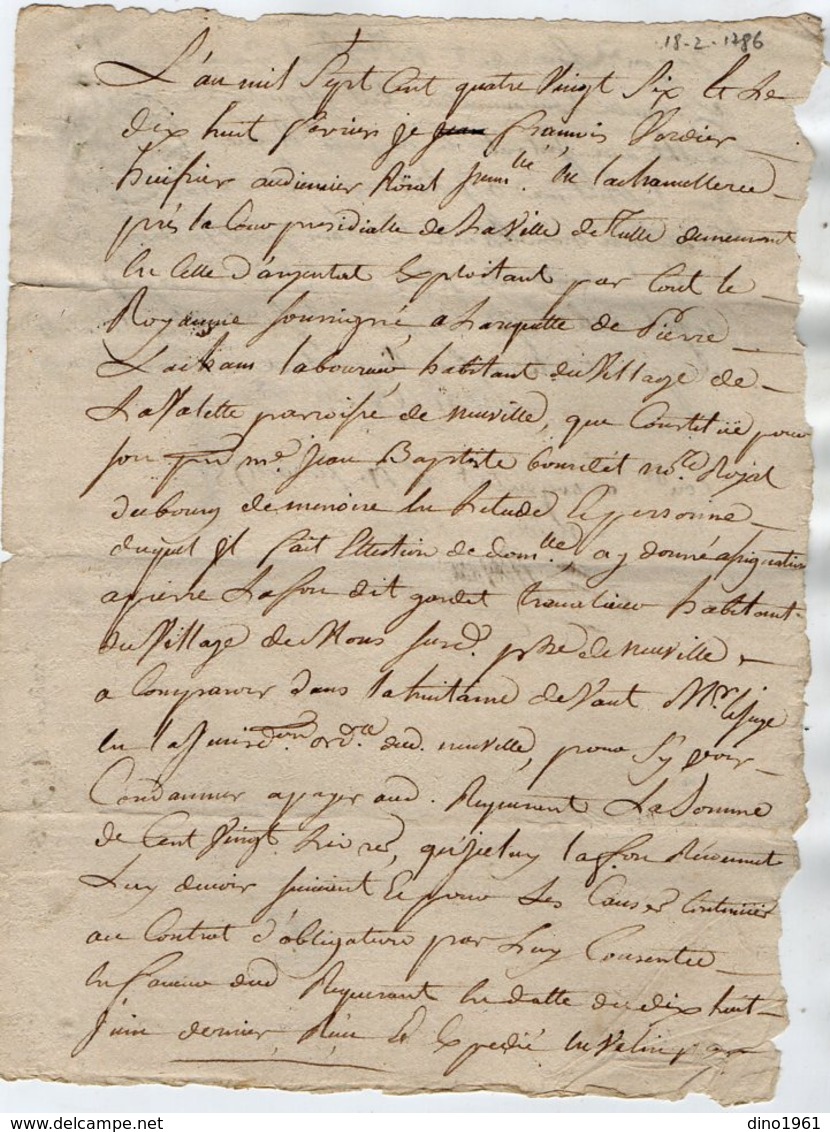 18-2-1786
L'an mil Sept Cent quatre Vingt Six & Le
dix huit fevrier je jean francois Verdier
huissier audiencier Röial imm.lle en la chancellerie
prés la Cour presidialle de La Ville de Tulle demeurant
en Celle d'argentat Exploitant par tout le
Royaume soussigné, a La requette de Pierre
laboureur, habitant du Village de
La Valette parroisse de neuville, que Constitüe pour
son pr. m.e jean Baptiste no.re Royal
du bourg de menoire En L'etude & personne
duquel il fait Ellection de dom.lle, ay donné assignation
a pierre Lafon dit gardet travalieur habitant
du Village de Mons susd. psse de neuville
a Comparoir dans la huitaine de Vant Mr. le juge
en la Jurisd.on ord.lle dud. neuville, pour S'y voir
Condamner a payer aud. Requerant La Somme
de Cent Vingt Livres, qu'iceluy lafon Reconnut
Luy devoir & pour Les Causes Contenües
au Contrat d'obligation par Luy Consentie
en faveur dud Requerant En datte du dix huit
juin dernier, Reçu & Expedié En Velin par
dino1961